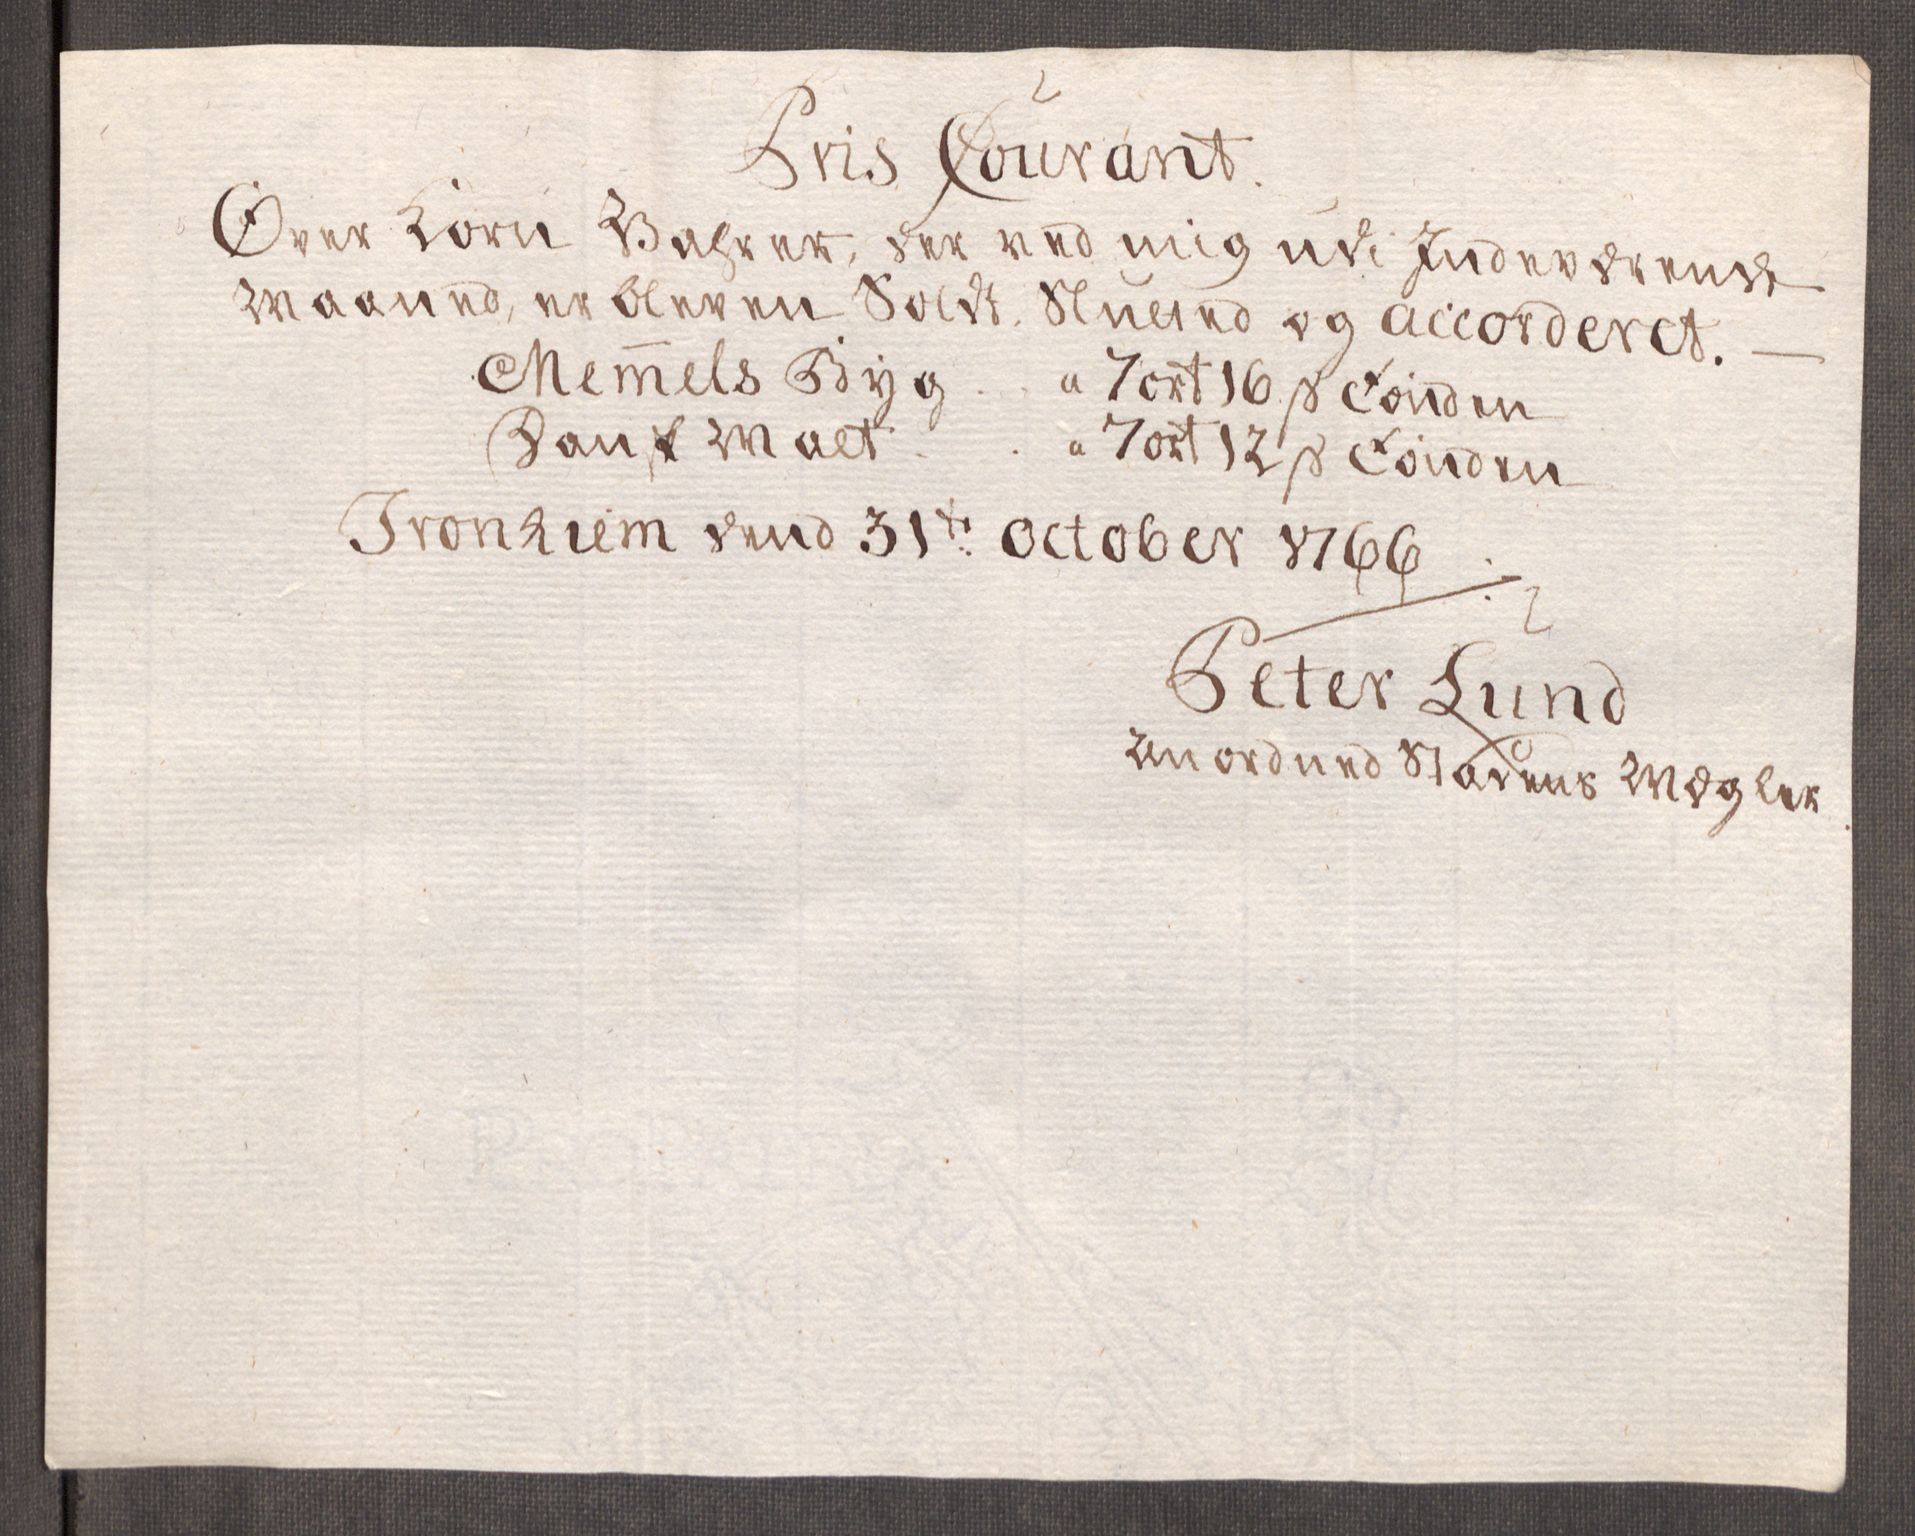 Pris Courant.
Over Korn Vahrer, der ved mig udi Indeværende
Maaned, er bleven Soldt, Slutted og accorderet. —
Mem̄els Byg . . a 7 ort 16 ß Tønden
Dansk Malt . . a 7 ort 12 ß Tønden
Tronhiem dend 31te October 1766
Peter Lund
Anordned Stadens Mægler.